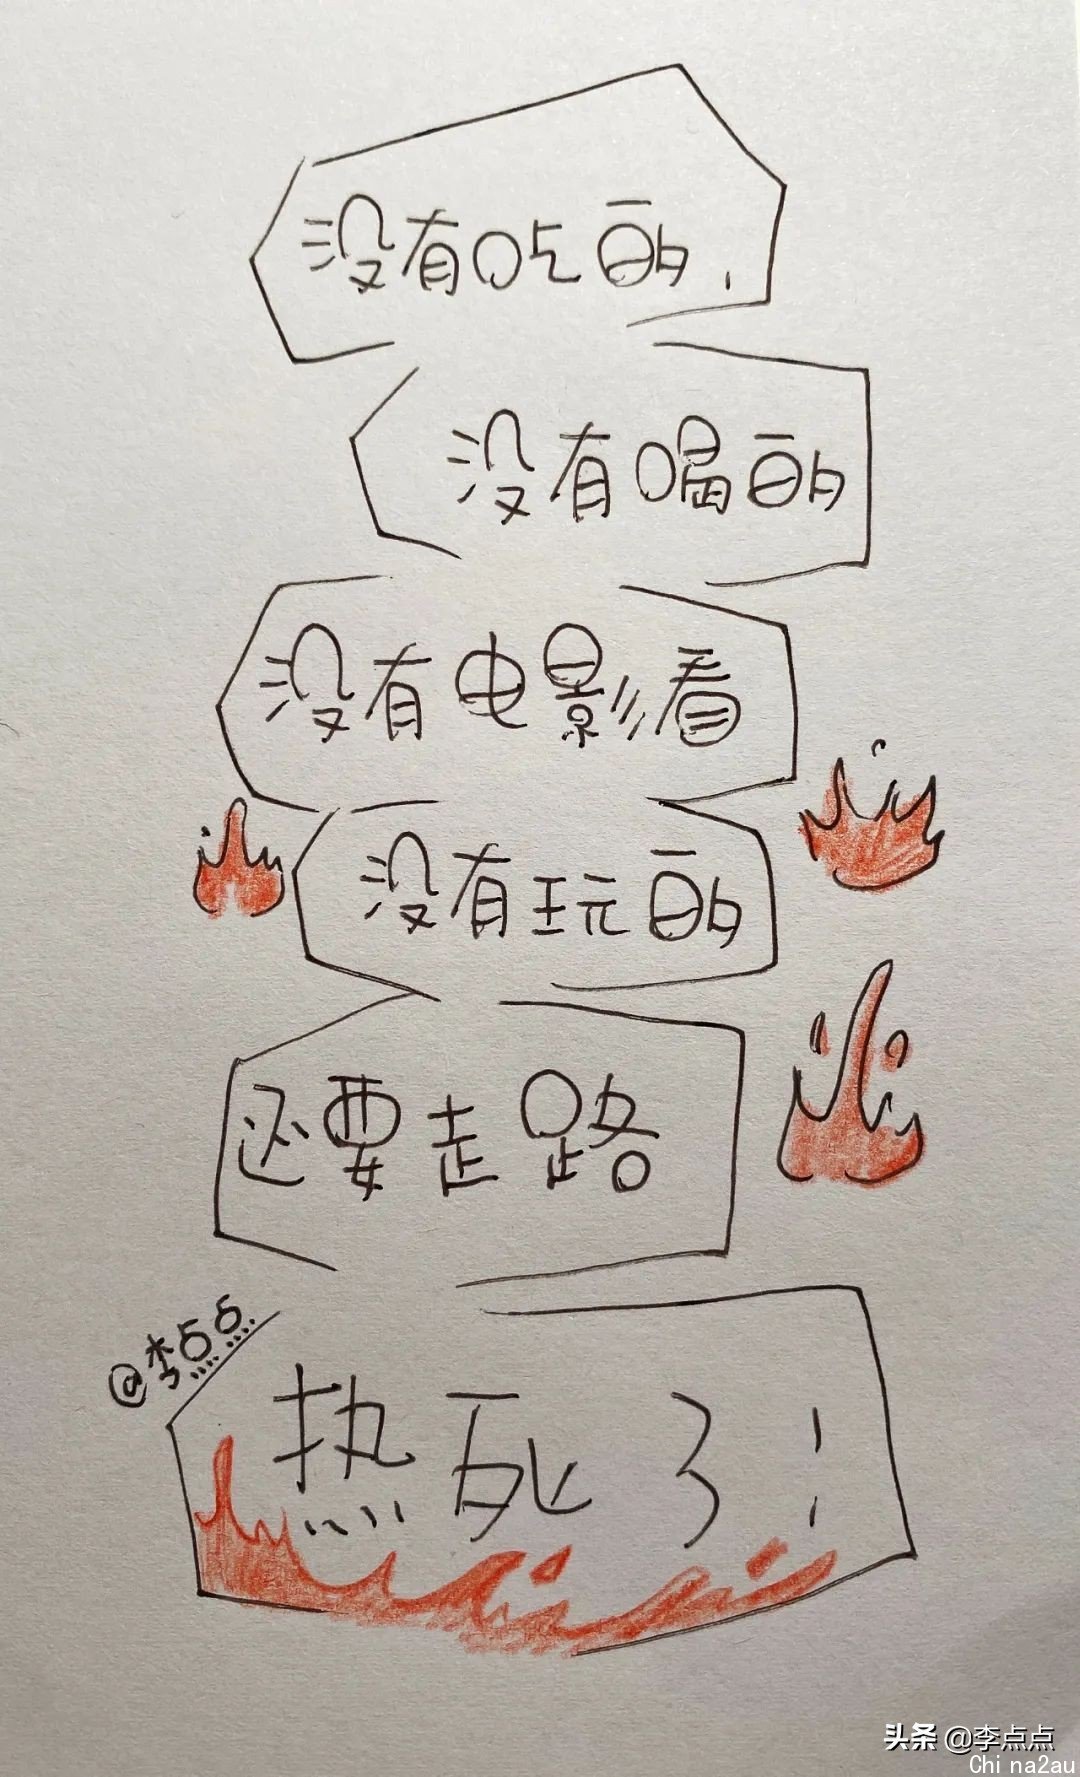 没有吃的，
没有喝的
没有电影看
没有玩的
还要走路
@李点点
热死了！
头条 @李点点
China2au